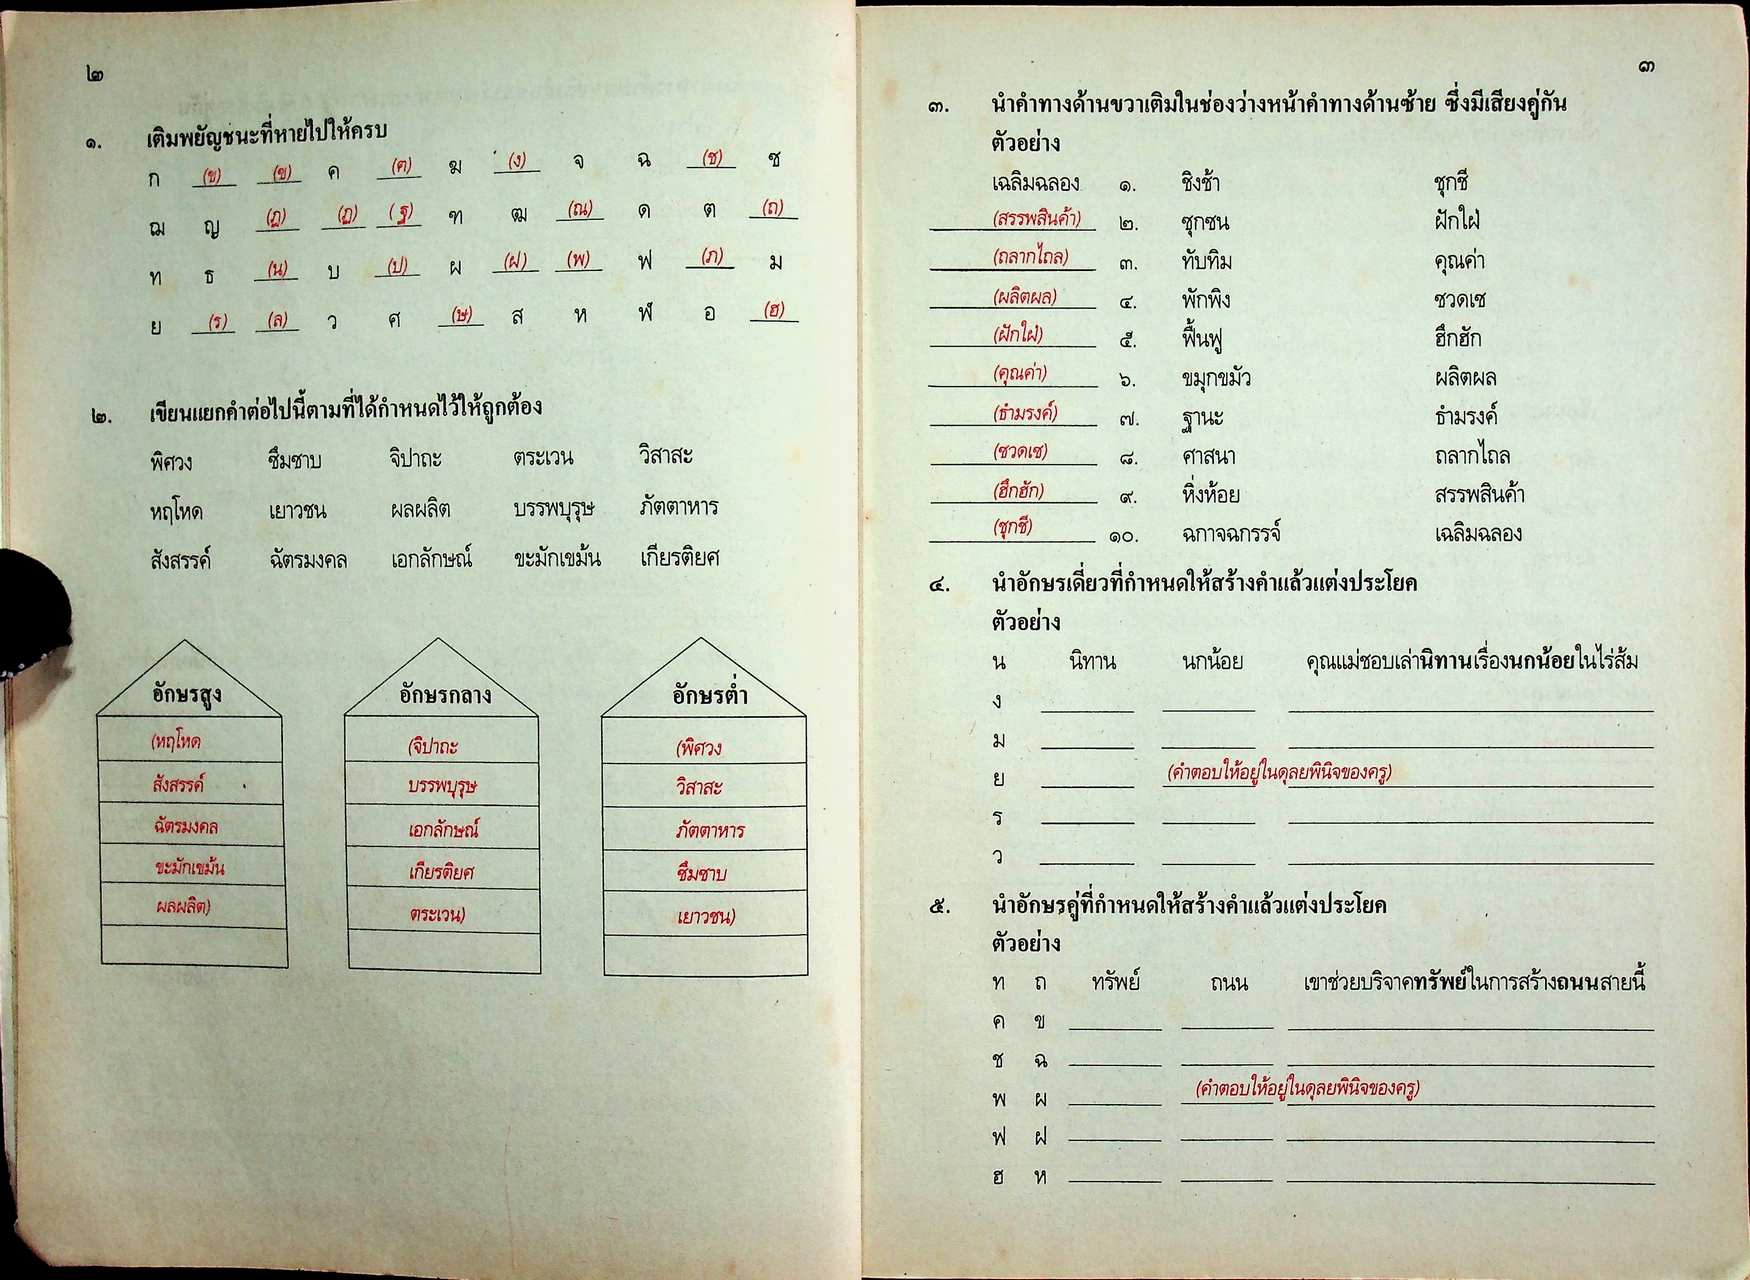 ๒
๑. เติมพยัญชนะที่หายไปให้ครบ
ก (ข) (ฃ) ค (ฅ) ฆ (ง) จ ฉ (ช) ซ
ฌ ญ (ฎ) (ฏ) (ฐ) ฑ ฒ (ณ) ด ต (ถ)
ท ธ (น) บ (ป) ผ (ฝ) (พ) ฟ (ภ) ม
ย (ร) (ล) ว ศ (ษ) ส ห ฬ อ (ฮ)
๒. เขียนแยกคำต่อไปนี้ตามที่ได้กำหนดไว้ให้ถูกต้อง
พิศวง ซึมซาบ จิปาถะ ตระเวน วิสาสะ
หฤโหด เยาวชน ผลผลิต บรรพบุรุษ ภัตตาหาร
สังสรรค์ ฉัตรมงคล เอกลักษณ์ ขะมักเขม้น เกียรติยศ
อักษรสูง อักษรกลาง อักษรต่ำ
(หฤโหด (จิปาถะ (พิศวง
สังสรรค์ บรรพบุรุษ วิสาสะ
ฉัตรมงคล เอกลักษณ์ ภัตตาหาร
ขะมักเขม้น เกียรติยศ ซึมซาบ
ผลผลิต) ตระเวน) เยาวชน)
๓
๓. นำคำทางด้านขวาเติมในช่องว่างหน้าคำทางด้านซ้าย ซึ่งมีเสียงคู่กัน
ตัวอย่าง
เฉลิมฉลอง ๑. ชิงช้า ชุกชี
(สรรพสินค้า) ๒. ซุกซน ฝักใฝ่
(ถลากไถล) ๓. ทับทิม คุณค่า
(ผลิตผล) ๔. พักพิง ชวดเช
(ฝักใฝ่) ๕. ฟื้นฟู ฮึกฮัก
(คุณค่า) ๖. ขมุกขมัว ผลิตผล
(ธำมรงค์) ๗. ฐานะ ธำมรงค์
(ซวดเซ) ๘. ศาสนา ถลากไถล
(ฮึกฮัก) ๙. หิ่งห้อย สรรพสินค้า
(ชุกชี) ๑๐. ฉกาจฉกรรจ์ เฉลิมฉลอง
๔. นำอักษรเดี่ยวที่กำหนดให้สร้างคำแล้วแต่งประโยค
ตัวอย่าง
น นิทาน นกน้อย คุณแม่ชอบเล่านิทานเรื่องนกน้อยในไร่ส้ม
ง
ม
ย (คำตอบให้อยู่ในดุลยพินิจของครู)
ร
ว
๕. นำอักษรคู่ที่กำหนดให้สร้างคำแล้วแต่งประโยค
ตัวอย่าง
ท ถ ทรัพย์ ถนน เขาช่วยบริจาคทรัพย์ในการสร้างถนนสายนี้
ค ข
ช ฉ
พ ผ (คำตอบให้อยู่ในดุลยพินิจของครู)
ฟ ฝ
ฮ ห